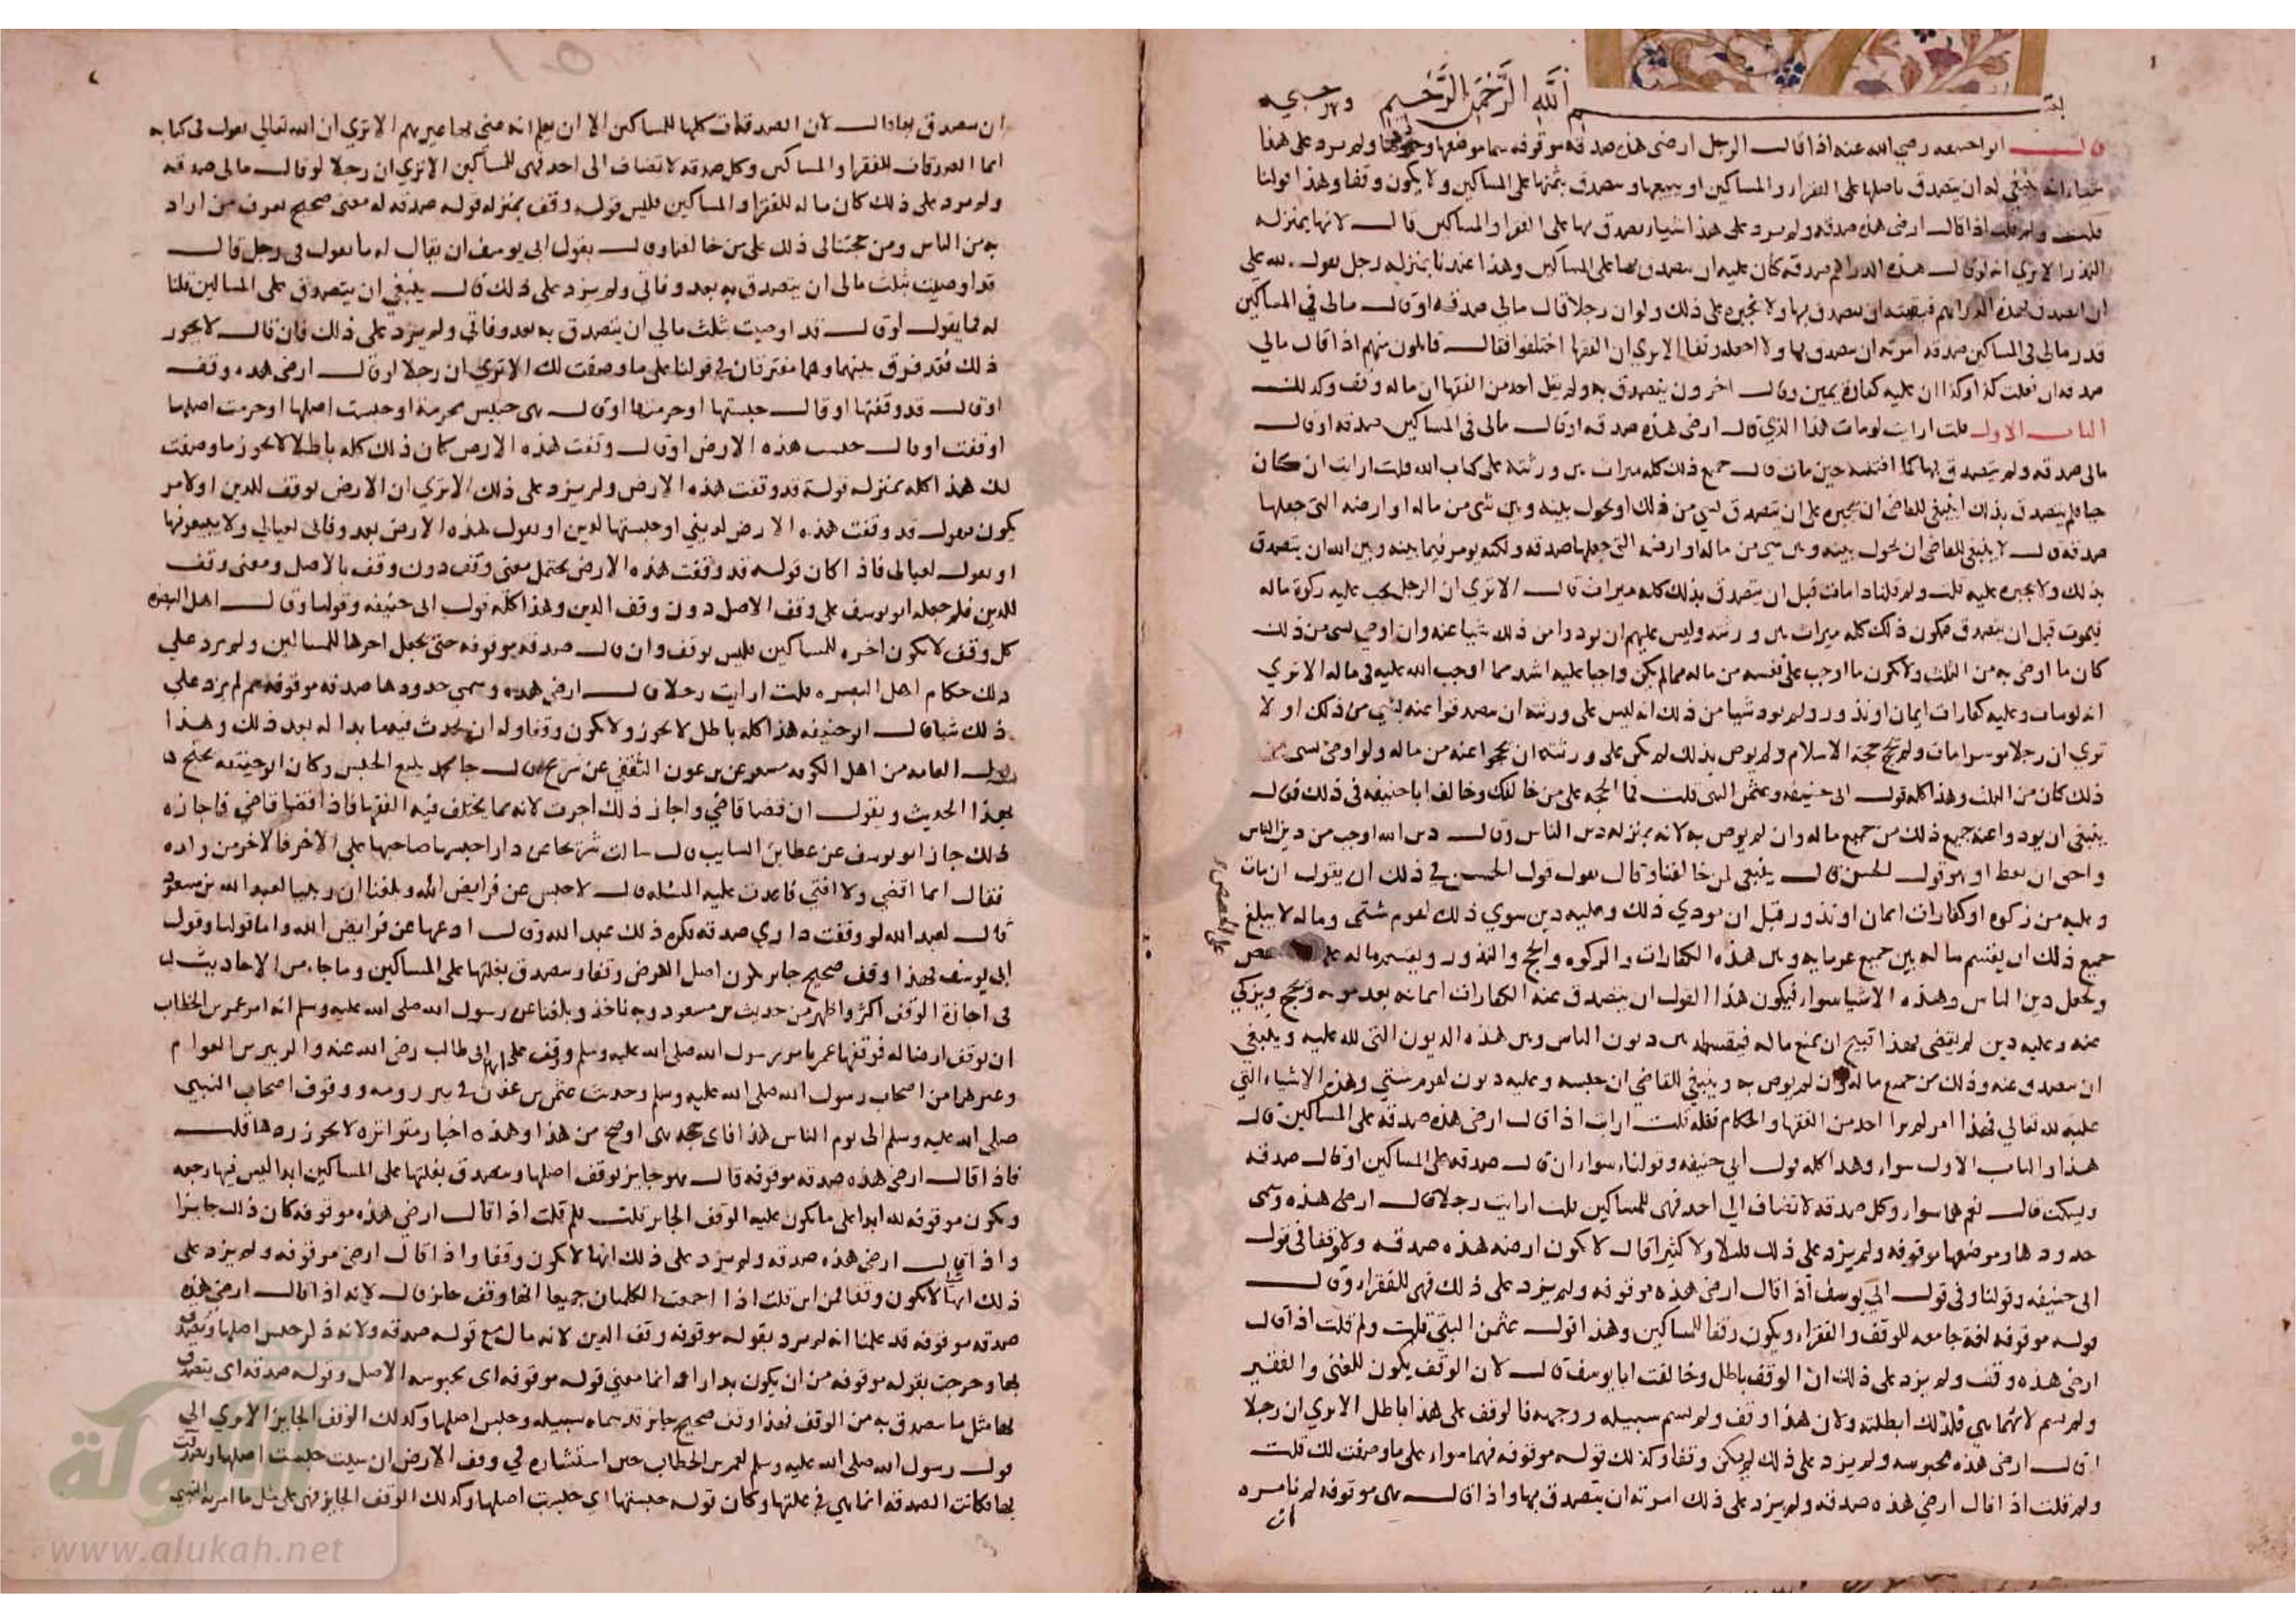 بسم الله الرحمن الرحيم
قال ابو حنيفه رضي الله عنه اذا قال الرجل ارضى هذه صدقة موقوفه سما موضعها ولم يزد على هذا
شيا انه ينبغي له ان يتصدق باصلها على الفقراء والمساكين او يبيعها ويتصدق بثمنها على المساكين ولا يكون وقفا وهذا قولنا
قلت ولم قلت اذا قال ارضى هذه صدقه ولم يزد على هذا شيا يتصدق بها على الفقرا والمساكين قال لانها بمنزله
النذر الا ترى انه لو قال هذه الدراهم صدقه كان عليه ان يتصدق بها على المساكين وهذا عندنا بمنزله رجل يقول لله على
ان اتصدق بهذه الدراهم فينبغي له ان يتصدق بها ولا نجبره على ذلك ولو ان رجلا قال مالى صدقه او قال مالى في المساكين
مالى في المساكين صدقه امرته ان يتصدق بها ولا اجعله وقفا الا ترى ان الفقها اختلفوا فقال قايلون منهم اذا قال مالي
صدقه ان فعلت كذا وكذا ان عليه كفارة يمين وقال اخرون يتصدق به ولم يقل احد من الفقها ان ماله وقف وكذلك
الباب الاول قلت ارايت لو مات هذا الذي قال ارضى هذه صدقه او قال مالى في المساكين صدقه او قال
مالى صدقه ولم يتصدق بها حين مات قال جميع ذلك كله ميراث بين ورثته على كتاب الله قلت ارايت ان كان
حيا فلم يتصدق بذلك اينبغى للقاضى ان يجبره على ان يتصدق بشي من ذلك او يحول بينه وبين شى من ماله او ارضه التى جعلها
صدقه قال لا ينبغى للقاضى ان يحول بينه وبين شي من ماله او ارضه التى جعلها صدقه ولكنه يومر فيما بينه وبين الله ان يتصدق
بذلك ولا يجبره عليه قلت ولم قلت اذا مات قبل ان يتصدق بذلك كله ميراث قال الا ترى ان الرجل يجب عليه زكوة ماله
فيموت قبل ان يتصدق فيكون ذلك كله ميراث بين ورثته وليس عليهم ان يودوا من ذلك شيا عنه وان اوصى بشى من ذلك
كان ما اوصى به من الثلث ولا يكون ما اوجب على نفسه من ماله مما لم يكن واجبا عليه اشد مما اوجب الله عليه في ماله الا ترى
انه لو مات وعليه كفارات ايمان او نذور ولم يود شيا من ذلك انه ليس على ورثته ان يتصدقوا عنه بشى من ذلك او لا
تري ان رجلا موسرا مات ولم يحج حجة الاسلام ولم يوص بذلك لم يكن على ورثته ان يحجوا عنه من ماله ولو اوصى بشى من
ذلك كان من الثلث وهذا كله قول ابى حنيفه وعثمن البتى قلت فما الحجه على من خالفك وخالف ابا حنيفه في ذلك قال
ينبغى ان يودوا عنه جميع ذلك من جميع ماله وان لم يوص به لانه بمنزله دين الناس وقال دين الله اوجب من دين الناس
واحق ان يعطا وهو قول الحسن قال ينبغى لمن خالفنا وقال بقول الحسن في ذلك ان يقول ان مات
وعليه من زكوه او كفارات ايمان او نذور قبل ان يودي ذلك وعليه دين سوي ذلك لقوم شتى وماله لا يبلغ
جميع ذلك ان يقسم ماله بين جميع غرمايه وبين هذه الكفارات والزكوه والحج والنذور ويقسم ماله
ويجعل دين الناس وهذه الاشيا سواء فيكون هذا القول ان يتصدق عنه الكفارات ايمانه بعد موته ويحج ويزكي
عنه وعليه دين لم يقض فهذا قبيح ان يمنع ماله فيقسم بين ديون الناس وبين هذه الديون التى لله عليه وينبغي
ان يتصدق عنه وذلك من جميع ماله وان لم يوص به وينبغي للقاضى ان حبسه وعليه ديون لقوم شتى وهذه الاشياء التي
عليه لله تعالى فهذا امر لم يرا احد من الفقها والحكام فعله قلت ارايت اذا قال ارضى هذه صدقه على المساكين قال
هذا والباب الاول سواء وهذا كله قول ابي حنيفه وقولنا سواء ان قال صدقه على المساكين او قال صدقه
وسكت قال نعم هما سواء وكل صدقه لا تضاف الى احد فهى للمساكين قلت ارايت رجلا قال ارضى هذه وسمى
حدودها وموضعها موقوفه ولم يزد على ذلك قليلا ولا كثيرا قال لا تكون ارضه هذه صدقه ولا وقفا في قول
ابى حنيفه وقولنا وفى قول ابي يوسف اذا قال ارضى هذه موقوفه ولم يزد على ذلك فهى للفقراء وقال
قوله موقوفه لفظة جامعه للوقف والفقراء ويكون وقفا للمساكين وهذا قول عثمن البتى قلت ولم قلت اذا قال
ارضى هذه وقف ولم يزد على ذلك ان الوقف باطل وخالفت ابا يوسف قال لان الوقف يكون للغنى والفقير
ولم يسم لايهما هى فلذلك ابطلته ولان هذا وقف ولم يسم سبيله ووجهه فالوقف على هذا باطل الا ترى ان رجلا
لو قال ارضى هذه محبوسه ولم يزد على ذلك لم يكن وقفا وكذلك قوله موقوفه فهما سواء على ما وصفت لك قلت
ولم قلت اذا قال ارضي هذه صدقه ولم يزد على ذلك امرته ان يتصدق بها واذا قال هى موقوفه لم تامره
ان
ان يتصدق بها قال لان الصدقات كلها للمساكين الا ان يعلم انه عنى بها غيرهم الا ترى ان الله تعالى يقول في كتابه
انما الصدقات للفقرا والمساكين وكل صدقه لا تضاف الى احد فهى للمساكين الا ترى ان رجلا لو قال مالى صدقه
ولم يزد على ذلك كان ماله للفقرا والمساكين فليس قوله وقف بمنزله قوله صدقه له معنى صحيح يعرف من اراد
به من الناس ومن حجتنا في ذلك على من خالفنا وقال بقول ابى يوسف ان يقال له ما يقول في رجل قال
قد اوصيت بثلث مالى ان يتصدق به بعد وفاتي ولم يزد على ذلك قال ينبغي ان يتصدق على المساكين قلنا
له فما يقول لو قال قد اوصيت بثلث مالي ان يتصدق به بعد وفاتي ولم يزد على ذلك فان قال لا يجوز
ذلك فقد فرق بينهما وهما مفترقان في قولنا على ما وصفت لك الا ترى ان رجلا لو قال ارضى هذه وقف
او قال قد وقفتها او قال حبستها او حرمتها او قال هى حبيس محرمة او حبست اصلها او حرمت اصلها
او قفت او قال حبست هذه الارض او قال وقفت هذه الارض كان ذلك كله باطلا لا يجوز ما وصفت
لك هذا كله بمنزله قوله قد وقفت هذه الارض ولم يزد على ذلك الا ترى ان الارض توقف للدين او لامر
يكون فيقول قد وقفت هذه الارض لديني او حبستها لدين او يقول هذه الارض بعد وفاتى لعيالي ولا يبيعونها
او يقول لعيالى فاذا كان قوله قد وقفت هذه الارض يحتمل معنى وقف دون وقف بالاصل ومعنى وقف
للدين فلم جعله ابو يوسف على وقف الاصل دون وقف الدين وهذا كله قول ابى حنيفه وقولنا وقال اهل البصره
كل وقف لا يكون اخره للمساكين فليس بوقف وان قال صدقه موقوفه حتى يجعل اخرها للمساكين ولم يزد على
ذلك حكام اهل البصره قلت ارايت رجلا قال ارضى هذه وسمى حدودها صدقه موقوفه ثم لم يزد على
ذلك شيا قال ابو حنيفه هذا كله باطل لا يجوز ولا يكون وقفا وله ان يحدث فيهما بدا له بعد ذلك وهذا
قول العامه من اهل الكوفه مسعر عن بن عون الثقفي عن شريح قال جا محمد ببيع الحبس وكان ابو حنيفه يحتج
بهذا الحديث ويقول ان قضا قاضي واجاز ذلك اجزت لانه مما يختلف فيه الفقها فاذا قضا قاضي فاجازه
لذلك جاز ابو يوسف عن عطا بن السايب قال سالت شريحا عن دار احبسها صاحبها على الاخر فالاخر من ولده
فقال انما اقضي ولا افتي فاعدت عليه المسئله قال لا حبس عن فرايض الله وبلغنا ان رجلا لعبد الله بن مسعود
قال لعبد الله لو وقفت داري صدقه فكره ذلك عبد الله وقال ادعها عن فرايض الله واما قولنا وقول
ابى يوسف فهذا وقف صحيح جايز يكون اصل الارض وقفا ويتصدق بغلتها على المساكين وما جاء من الاحاديث
فى اجازة الوقف اكثر واظهر من حديث بن مسعود وبه ناخذ وبلغنا عن رسول الله صلى الله عليه وسلم انه امر عمر بن الخطاب
ان يوقف ارضا له فوقفها عمر بامر رسول الله صلى الله عليه وسلم ووقف على بن ابى طالب رضى الله عنه والزبير بن العوام
وغيرهما من اصحاب رسول الله صلى الله عليه وسلم وحديث عثمن بن عفان في بير رومه ووقوف اصحاب النبي
صلى الله عليه وسلم الى يوم الناس هذا فاى حجه هى اوضح من هذا وهذه اخبار متواتره لا يجوز ردها قلت
فاذا قال ارضى هذه صدقه موقوفه قال هو جايز توقف اصلها ويتصدق بغلتها على المساكين ابدا ليس فيها رجعه
وتكون موقوفه لله ابدا على ما يكون عليه الوقف الجايز قلت فلم قلت اذا قال ارضي هذه موقوفه كان ذلك جايزا
واذا قال ارضى هذه صدقه ولم يزد على ذلك انها لا تكون وقفا واذا قال ارضى موقوفه ولم يزد على
ذلك انها لا تكون وقفا فمن اين قلت اذا اجتمعت الكلمتان جميعا انها وقف جايز قال لانه اذا قال ارضى هذه
صدقه موقوفه قد علمنا انه لم يرد بقوله موقوفه وقف الدين لانه قال مع قوله صدقه ولانه ذكر حبس اصلها ويتصدق
بها وخرجت بقوله موقوفه من ان يكون انما معني قوله موقوفه اى محبوسه الاصل وقوله صدقه اى يتصدق
بها مثل ما يتصدق به من الوقف فهذا وقف صحيح جايز قد سماه سبيله وحبس اصلها وكذلك الوقف الجايز الا ترى الى
قول رسول الله صلى الله عليه وسلم لعمر بن الخطاب حين استشاره في وقف الارض ان شيت حبست اصلها وتصدقت
بها فكانت الصدقه انما هي في غلتها وكان قوله حبستها اي حبست اصلها وكذلك الوقف الجايز فهى على مثل ما امر به النبي
الألوكة
www.alukah.net